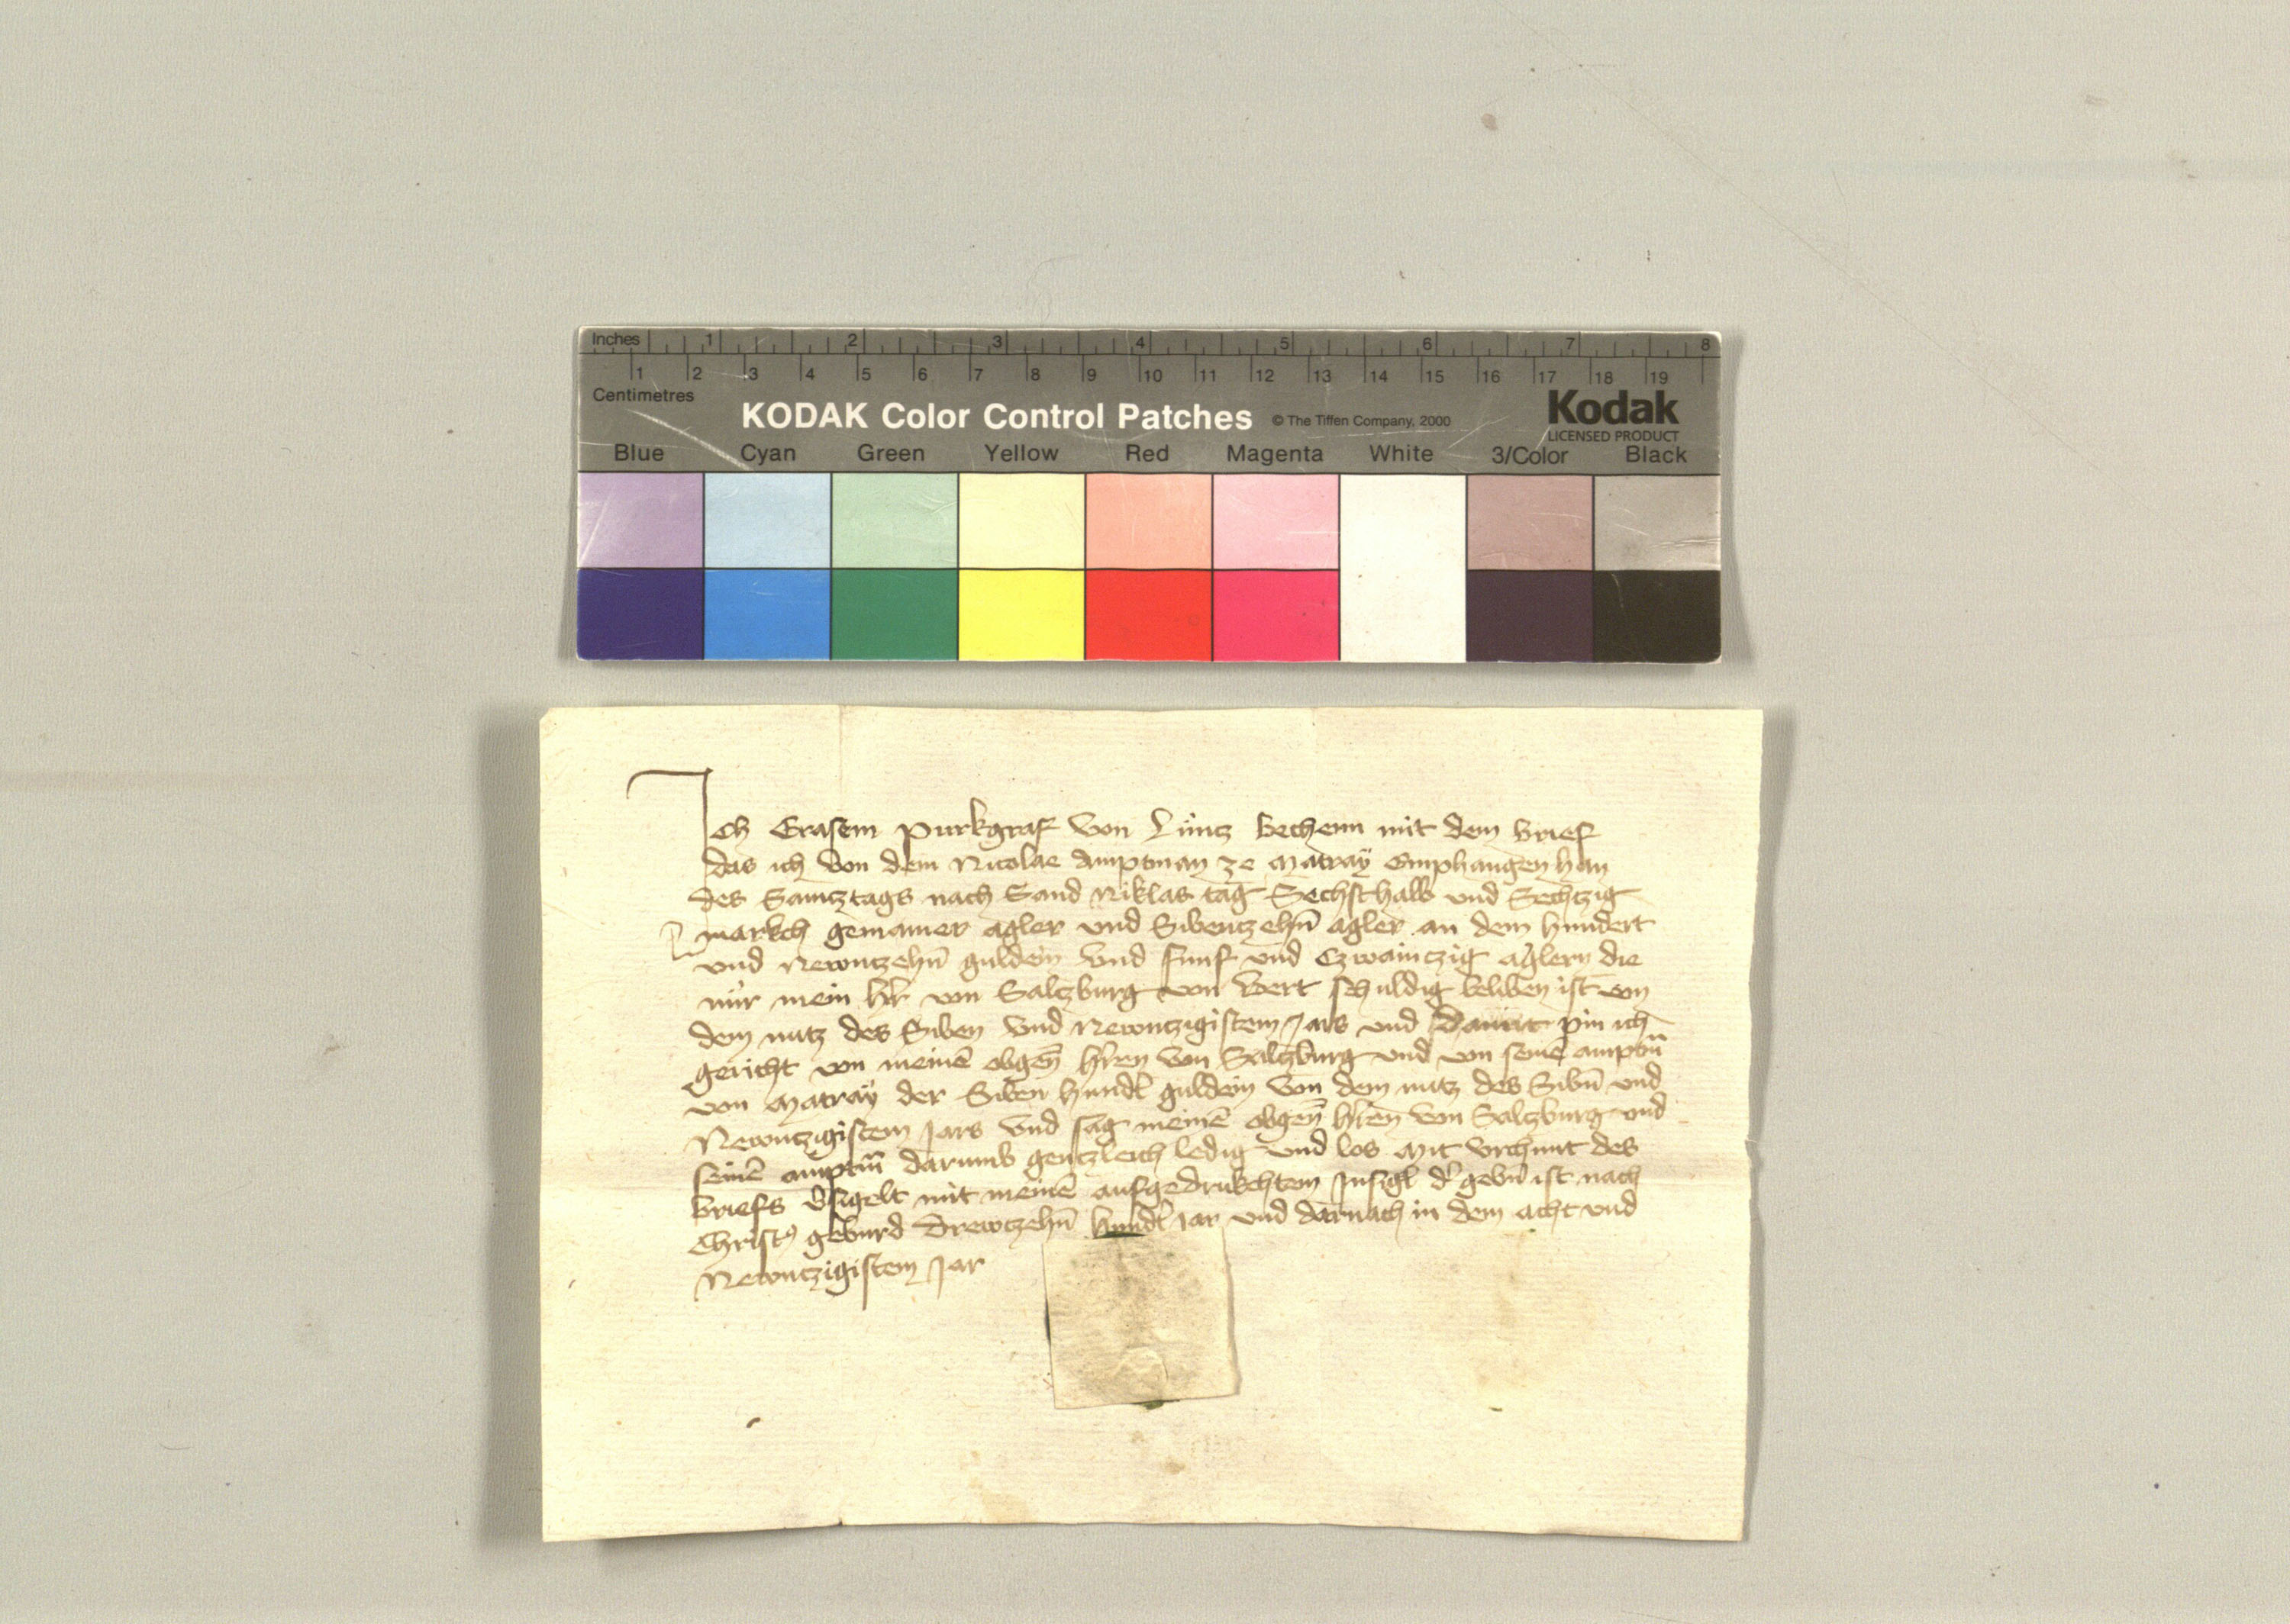 Inches 1 2 3 4 5 6 7 8
1 2 3 4 5 6 7 8 9 10 11 12 13 14 15 16 17 18 19
Centimetres
KODAK Color Control Patches © The Tiffen Company, 2000 Kodak
LICENSED PRODUCT
Blue Cyan Green Yellow Red Magenta White 3/Color Black
Ich Erasem purkgraf von Lüncz bechenn mit dem brief
das ich von dem Nicolae amptman ze Matray Emphangen han
des Samcztags nach Sand Niklas tag Sechsthalb und Sechtzig
markch gemainer agler und Sibenczehn̄ agler an dem hundert
und Newnczehn̄ guldein und funf und Czwainczig aglern die
mir mein hr̄ von Salczburg von wert schuldig beliben ist von
dem nucz des Siben und Newnczigistem Jars und damit pin ich
gericht von meinē obgen̄ hr̄ren von Salczburg und von seinē amptm̄
von Matray der Siben hundt̄ guldein von dem nucz des Sibn̄ und
Newnczigistem Jars und sag meinē obgen̄ hr̄ren von Salczburg und
seinē amptm̄ darumb genczleich ledig und los Mit urchunt des
briefs v̄sigelt mit meinē aufgedrukchtem Insigl d' gebn̄ ist nach
Christ⁹ geburd Drewczehn̄ hundt̄ Jar und darnach in dem acht und
Newnczigistem Jar